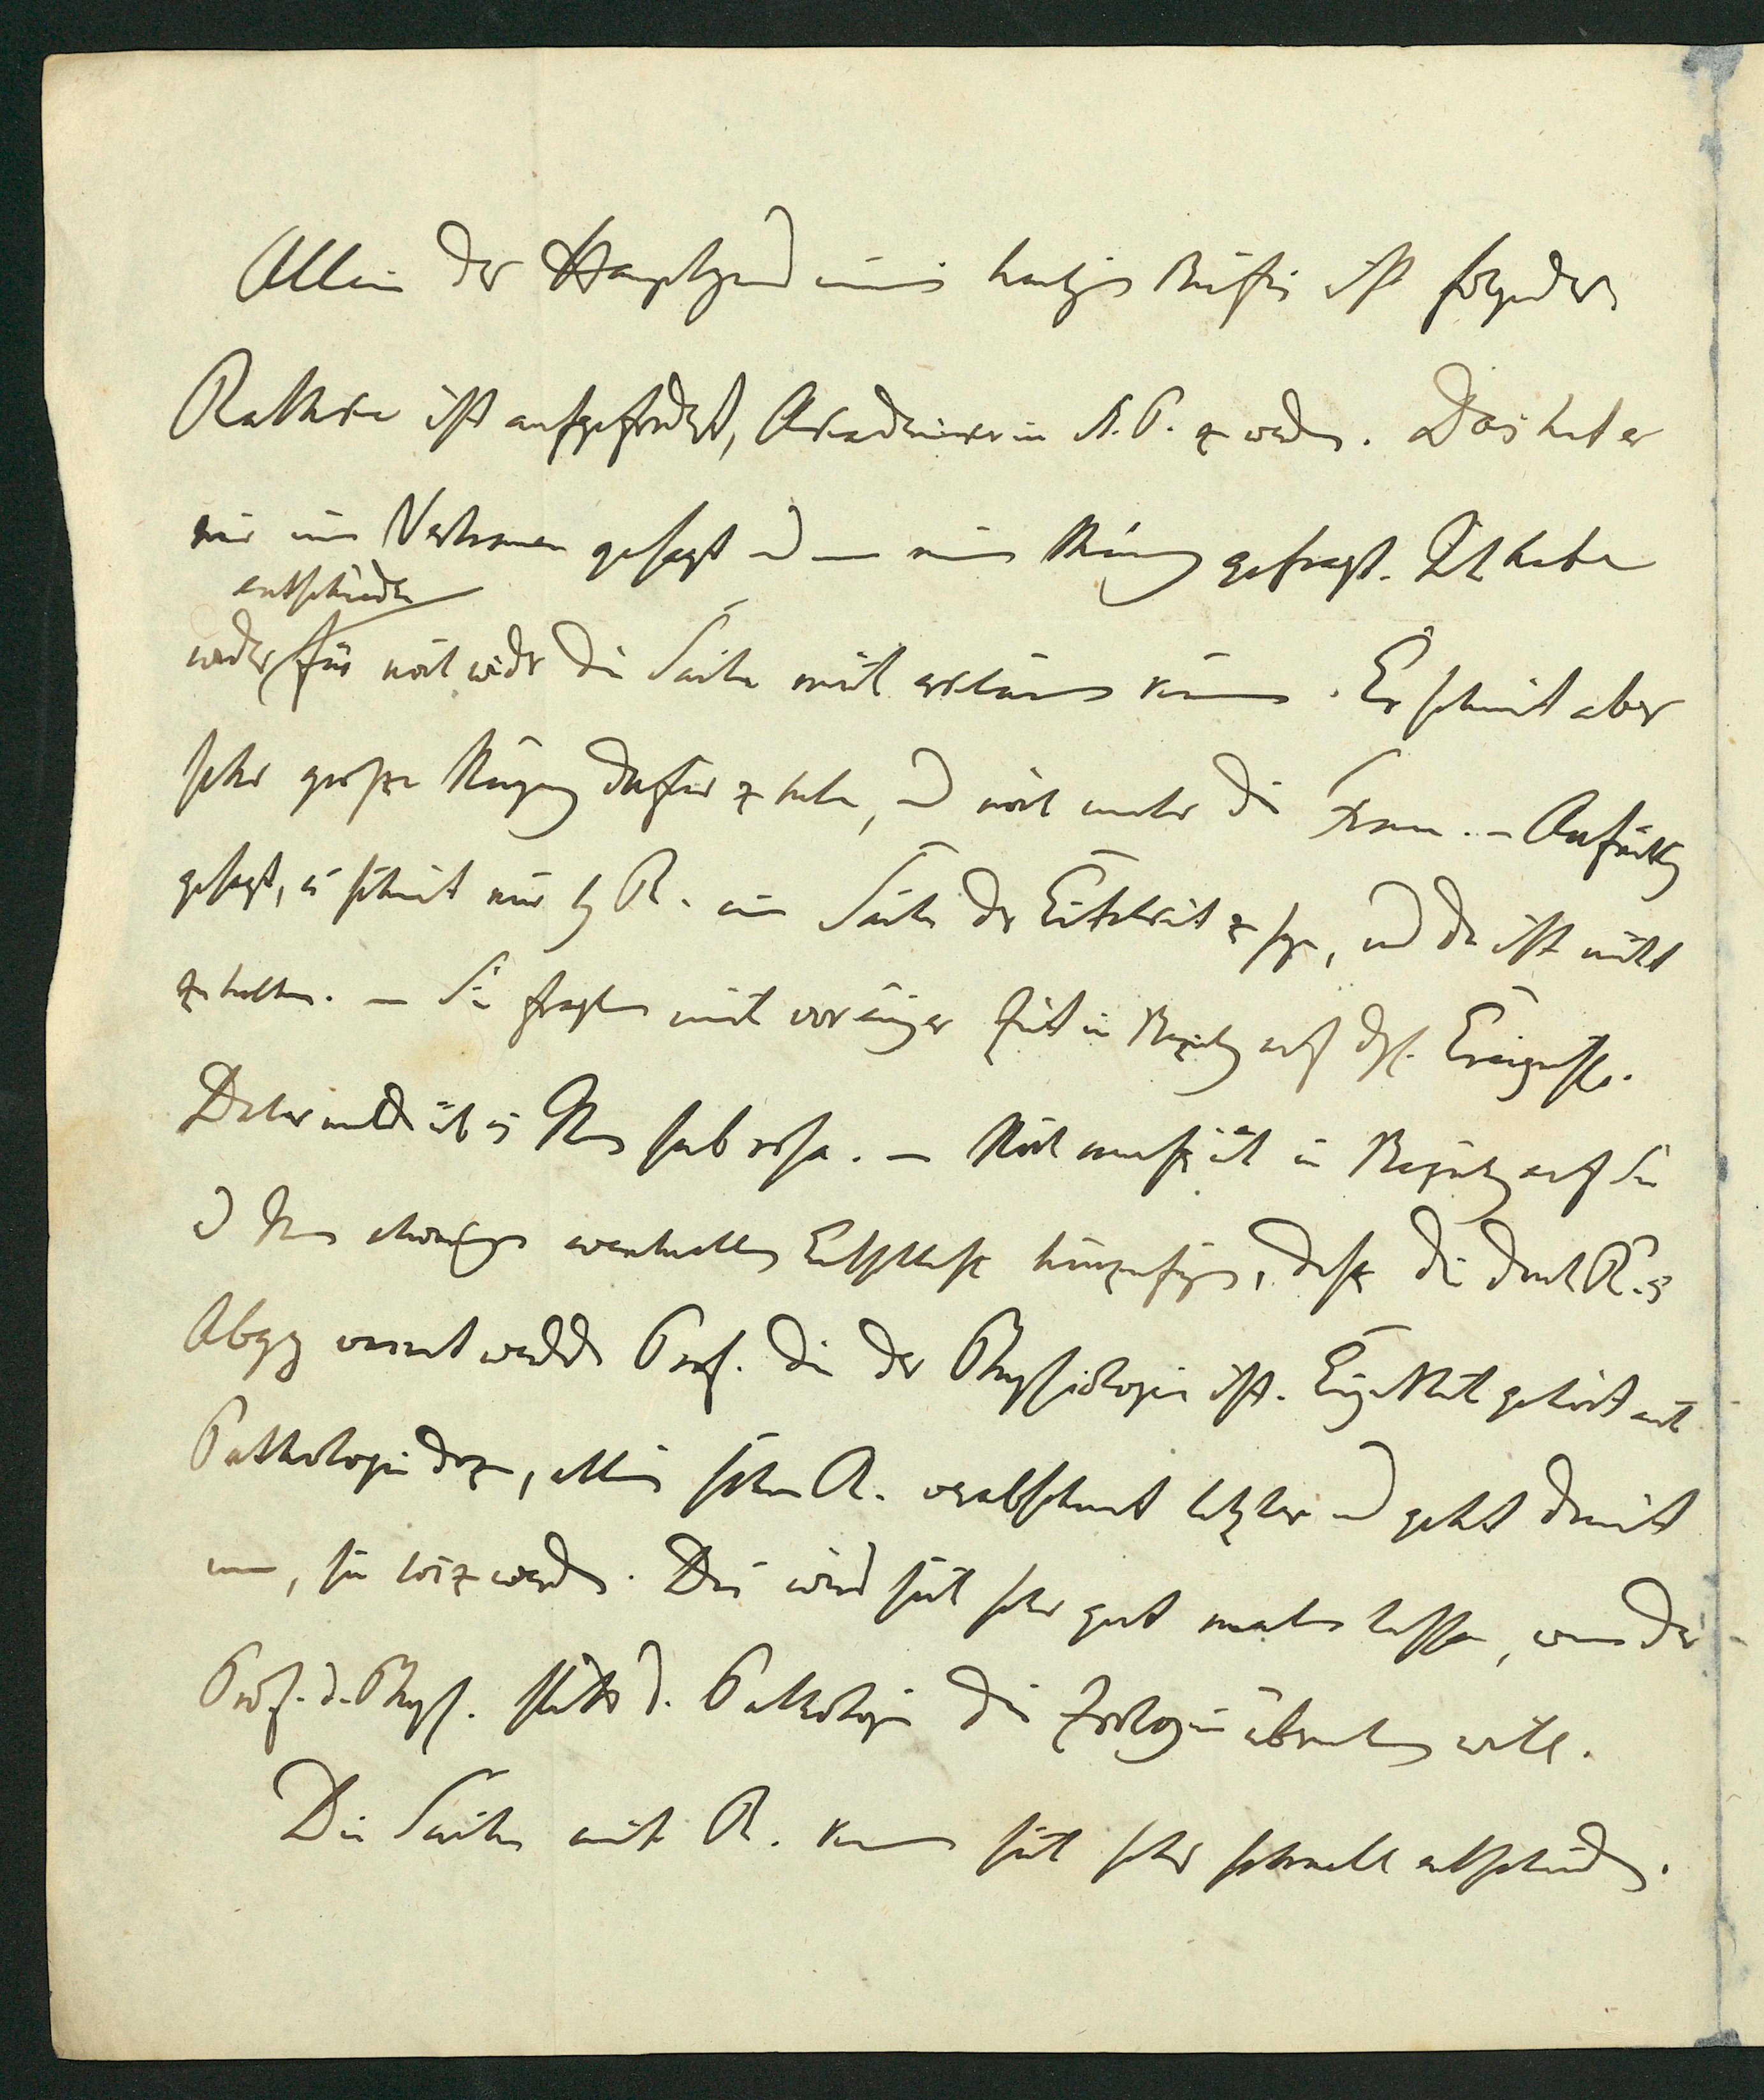 Allein der Hauptgrund meines heutigen Briefes ist folgender.
Rathke ist aufgefordert, Akademiker in St. P. zu werden. Das hat er
mir im Vertrauen gesagt und um meine Meinung gefragt. Ich habe
entschieden
weder für noch wider die Sache mich erklären können. Er scheint aber
sehr große Neigung dafür zu haben, und noch mehr die Frau. – Aufrichtig
gesagt, es scheint mir bey R. eine Sache der Eitelkeit zu seyn, und da ist nichts
zu halten. – Sie fragten mich vor einiger Zeit in Bezug auf dgl. Ereignisse.
Daher melde ich es Ihnen sub rosa. – Noch muß ich in Bezug auf Sie
und Ihre etwaigen eventuellen Entschlüsse hinzufügen, daß die durch R.s
Abgang vacant werdende Prof. die der Physiologie ist. Eigentlich gehört auch
Pathologie dazu, allein schon R. verabscheut letztere und geht damit
um, sie los zu werden. Dies wird sich sehr gut machen lassen, wenn der
Prof. d. Phys. statt d. Pathologie die Zoologie übernehmen will.
Die Sache mit R. kann sich sehr schnell entscheiden.